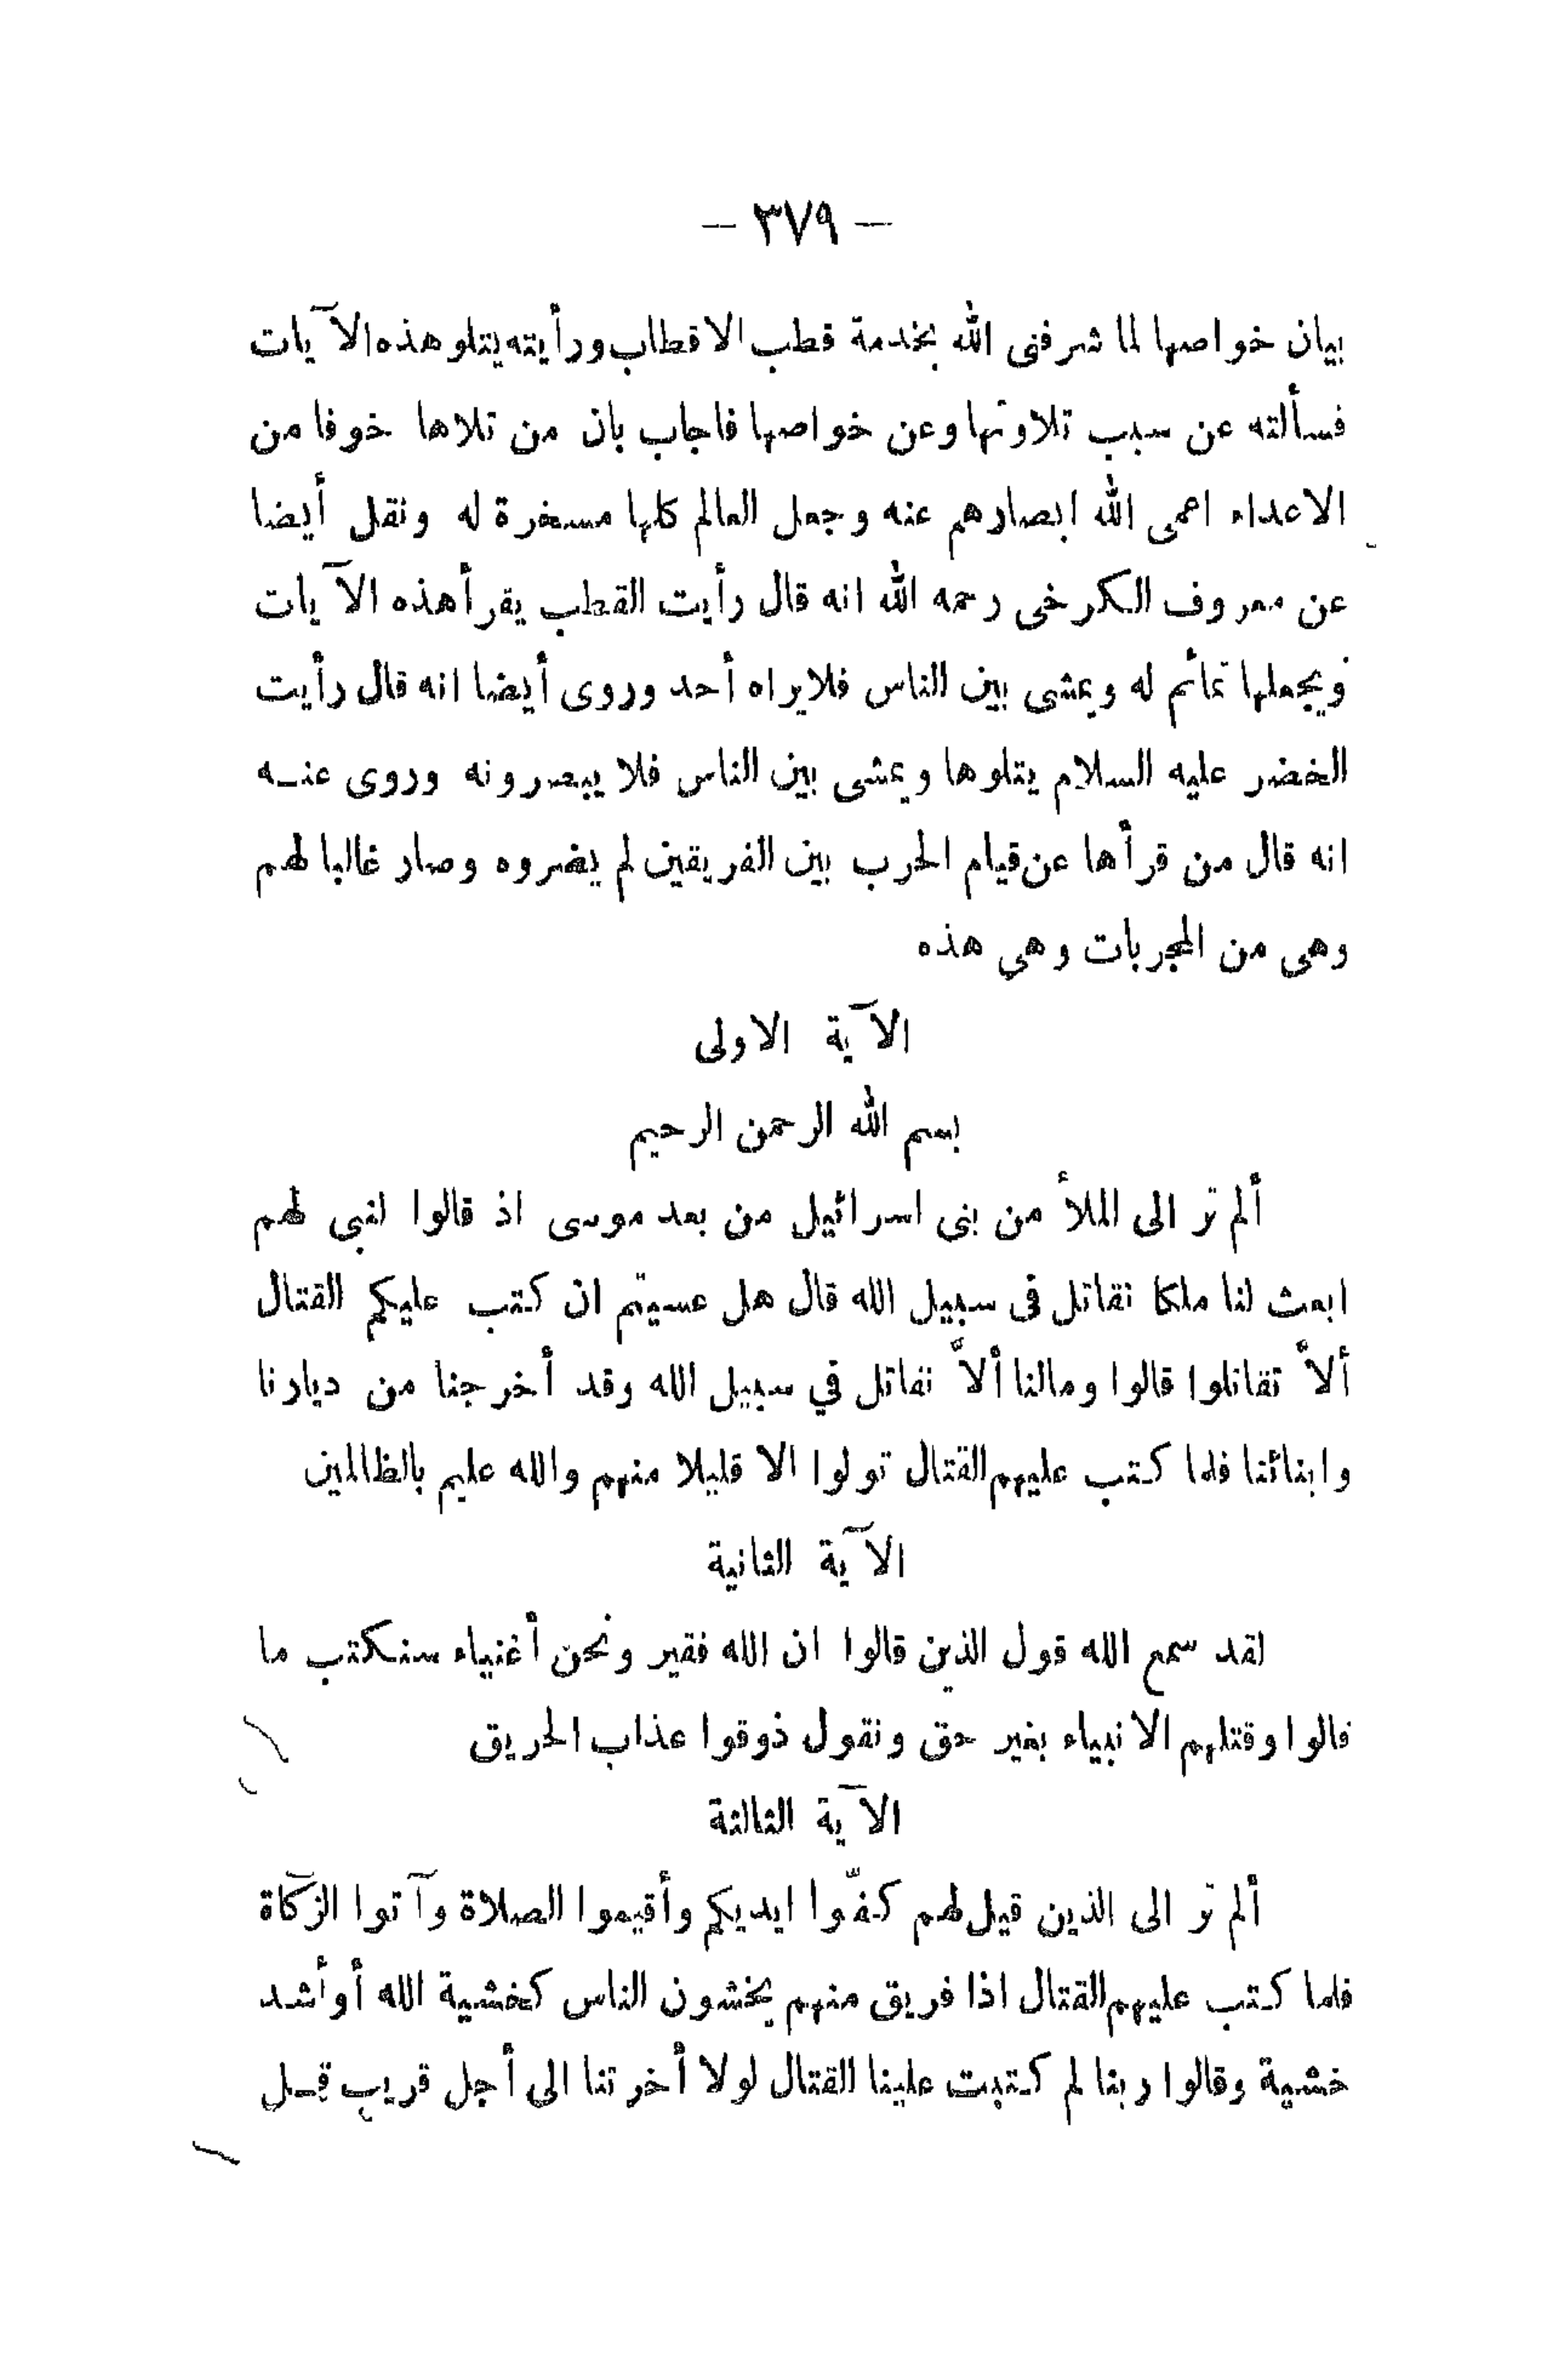 — ٣٧٩ —
بيان خواصها لما شرفنى الله بخدمة قطب الاقطاب ورأيته يتلو هذه الآيات
فسألته عن سبب تلاوتها وعن خواصها فاجاب بان من تلاها خوفا من
الاعداء اعمى الله ابصارهم عنه وجعل العالم كلها مسخرة له ونقل أيضا
عن معروف الكرخى رحمه الله انه قال رأيت القطب يقرأ هذه الآيات
ويجعلها تمائم له ويمشى بين الناس فلا يراه أحد وروى أيضا انه قال رأيت
الخضر عليه السلام يتلوها ويمشى بين الناس فلا يبصرونه وروى عنه
انه قال من قرأها عن قيام الحرب بين الفريقين لم يضروه وصار غالبا لهم
وهى من المجربات وهي هذه
الآية الاولى
بسم الله الرحمن الرحيم
ألم تر الى الملأ من بنى اسرائيل من بعد موسى اذ قالوا لنبى لهم
ابعث لنا ملكا نقاتل فى سبيل الله قال هل عسيتم ان كتب عليكم القتال
ألاّ تقاتلوا قالوا ومالنا ألاّ نقاتل في سبيل الله وقد أخرجنا من ديارنا
وابنائنا فلما كتب عليهم القتال تولوا الا قليلا منهم والله عليم بالظالمين
الآية الثانية
لقد سمع الله قول الذين قالوا ان الله فقير ونحن أغنياء سنكتب ما
قالوا وقتلهم الانبياء بغير حق ونقول ذوقوا عذاب الحريق
الآية الثالثة
ألم تر الى الذين قيل لهم كفّوا ايديكم وأقيموا الصلاة وآتوا الزكاة
فلما كتب عليهم القتال اذا فريق منهم يخشون الناس كخشية الله أو أشد
خشية وقالوا ربنا لم كتبت علينا القتال لولا أخرتنا الى أجل قريب قل